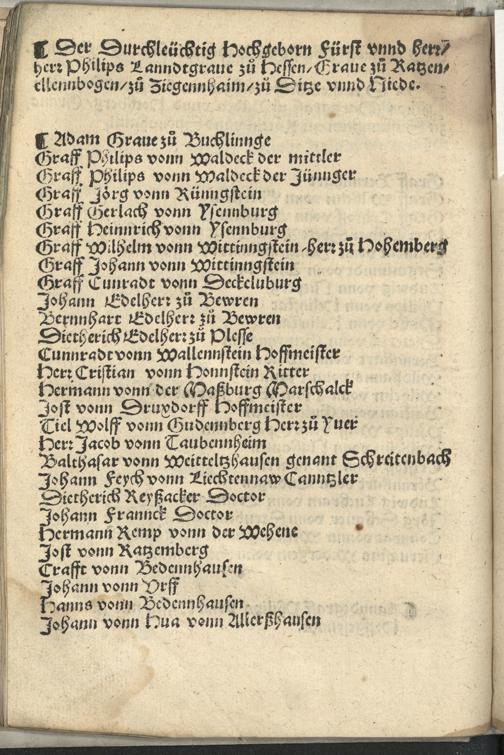 ¶ Der Durchleüchtig Hochgeborn Fürst vnnd herr/
herr Philips Lanndtgraue zů Hessen/Graue zů Katzen/
ellennbogen/zů Ziegennhaim/zů Ditze vnnd Niede.
¶ Adam Graue zů Buchlinnge
Graff Philips vonn Waldeck der mittler
Graff Philips vonn Waldeck der Jünnger
Graff Jörg vonn Künngstein
Graff Gerlach vonn Ysennburg
Graff Heinnrich vonn Ysennburg
Graff Wilhelm vonn Wittinngstein/herr zů Hohemberg
Graff Johann vonn Wittinngstein
Graff Cunradt vonn Deckeluburg
Johann Edelherr zů Bewren
Bernnhart Edelherr zů Bewren
Dietherich Edelherr zů Plesse
Cunnradt vonn Wallennstein Hoffmeister
Herr Cristian vonn Honnstein Ritter
Hermann vonn der Maßburg Marschalck
Jost vonn Druxdorff Hoffmeister
Tiel Wolff vonn Gudennberg Herr zů Yuer
Herr Jacob vonn Taubennheim
Balthasar vonn Weitteltzhausen genant Schreitenbach
Johann Feych vonn Liechtennaw Canntzler
Dietherich Reyßacker Doctor
Johann Frannck Doctor
Hermann Remp vonn der Wehene
Jost vonn Ratzemberg
Crafft vonn Bedennhausen
Johann vonn Vrff
Hanns vonn Bedennhausen
Johann vonn Hua vonn Allerßhausen